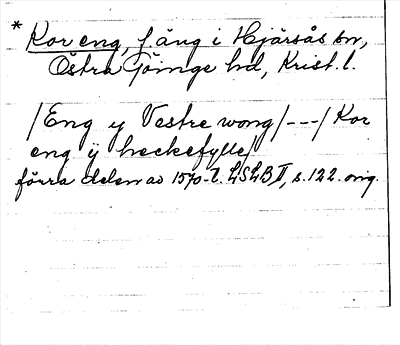 * Kor eng, f. äng i Hjärsås sn,
Östra Göinge hd, Krist. l.
/Eng y Vestre wong/---/Kor
eng ÿ heckefylle/
förra delen av 1570-t. LSLB II, s. 122. orig.